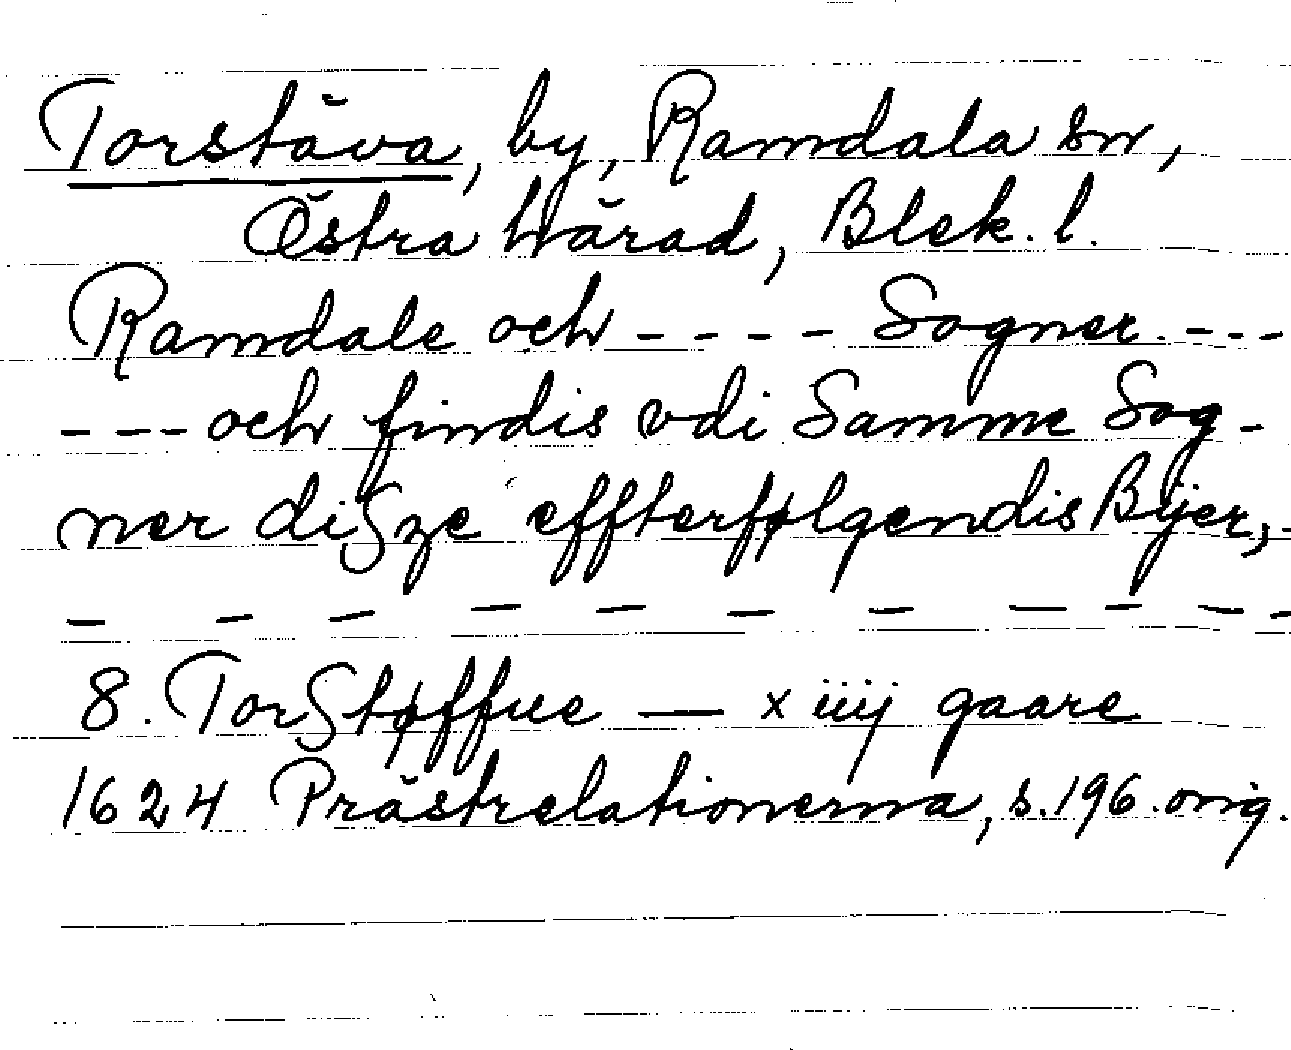 Torstäva, by, Ramdala sn,
Östra härad, Blek. l.
Ramdale och - - - - Sogner. - - -
- - - och findis vdi Samme Sog-
ner diſze effterfølgendis Bÿer,
- - - - - - - - - - -
8. Torſtøffue — xiiij gaare
1624 Prästrelationerna, s. 196. orig.